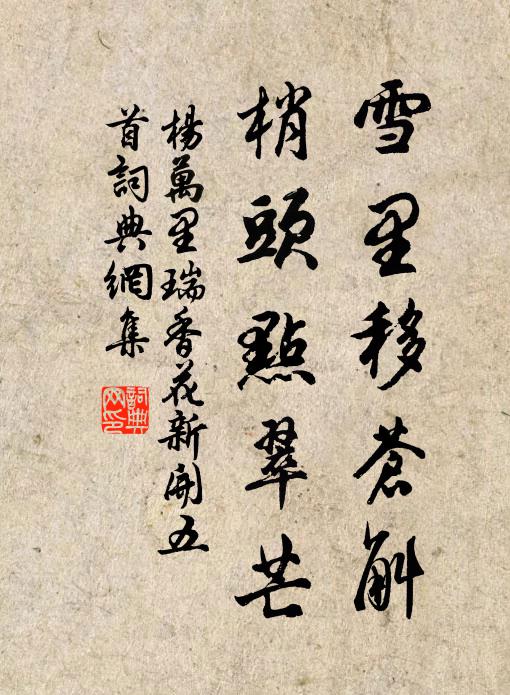 雪里移蒼斛
梢頭點翠芒
楊萬里瑞香花新開五
首詞典網集
詞典
网印